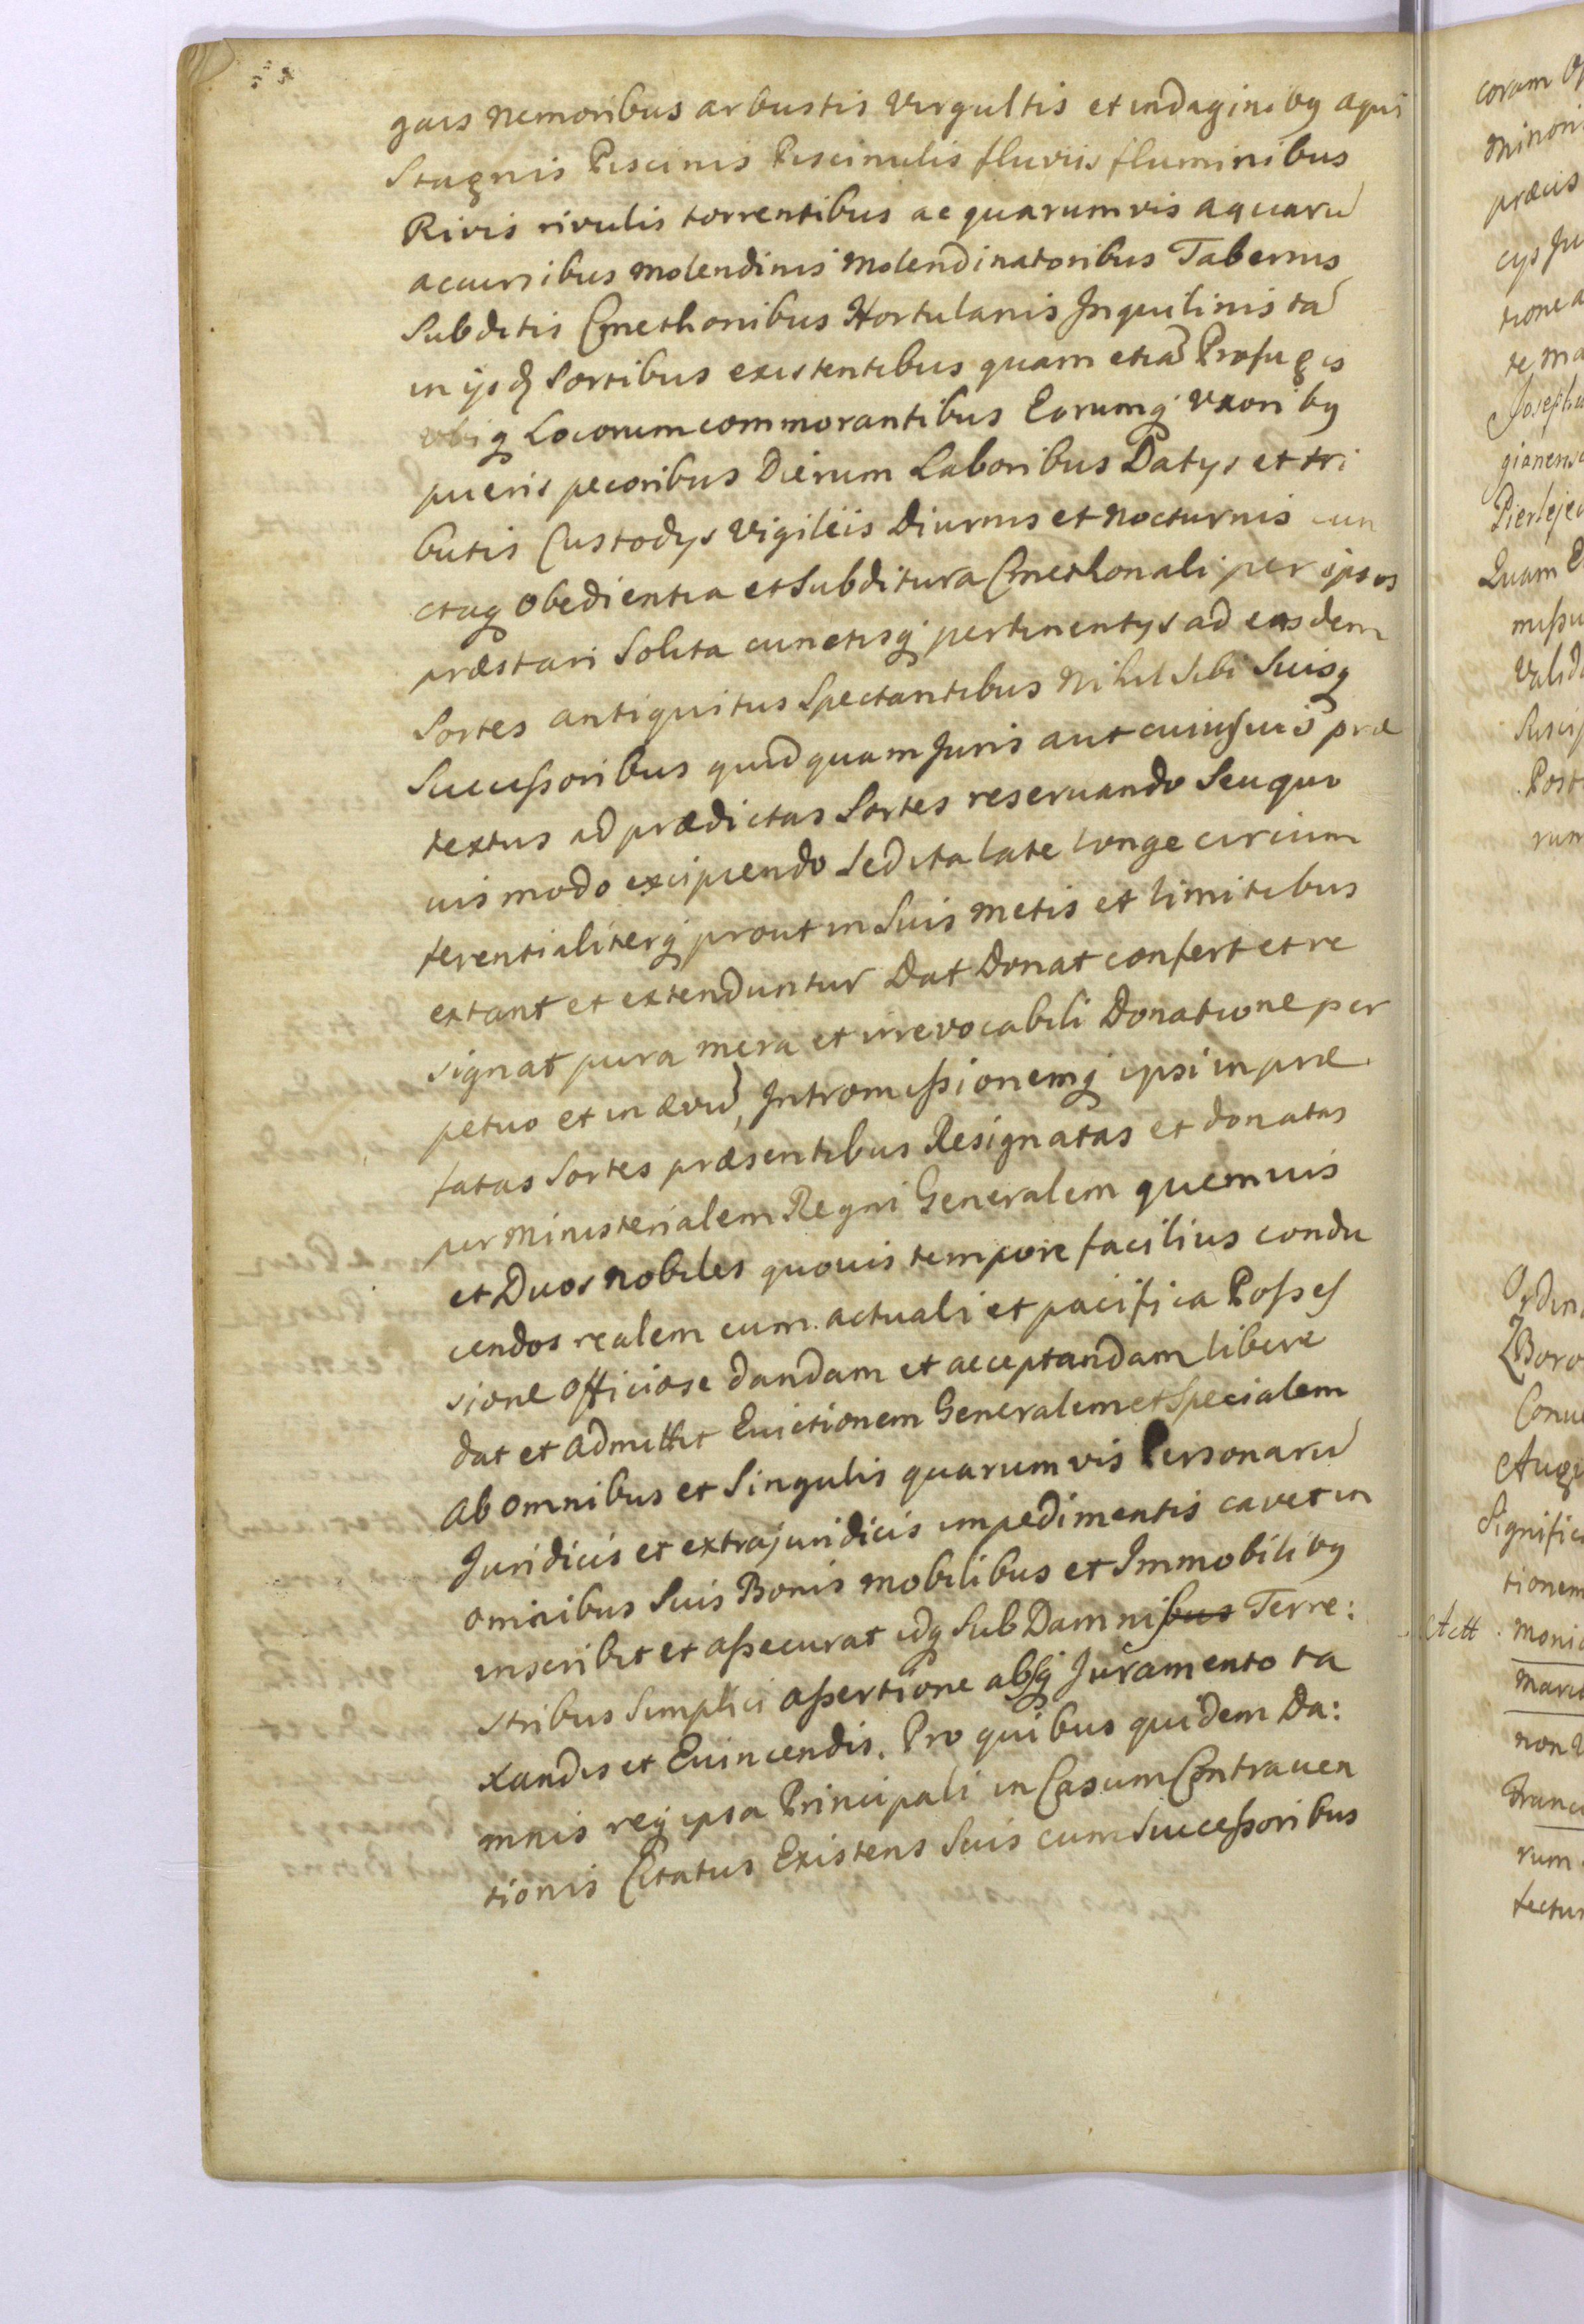 gais nemoribus arbustis virgultis et indaginibq aqui
Stagnis Piscinis Piscinulis fluviis fluminibus
Rivis rivulis torrentibus ac quarumvis aquarū
accursibus molendinis molendinatoribus Tabernis
Subditis Cmethonibus Hortulanis Inquilinis tā
in ijsdē Sortibus existentibus quam etiā Profugis
ubiq Locorum commorantibus Earumq uxoribq
pueris pecoribus Dierum Laboribus Datys et tri
butis Custodys vigiliis Diurnis et Nocturnis cun
ctaq obedientia et Subditura Cmethonali per ipsos
præstari Solita cunctisq pertinentys ad easdem
Sortes antiquitus Spectantibus Nihil Sibi Suisq
Successoribus quidquam Juris aut cuiusuis præ
textus ad prædictas Sortes reseruando Seu quo
uis modo excipiendo Sed ita late longe circum
ferentialiterq prout in Suis metis et limitibus
extant et extenduntur Dat Donat confert et re
signat pura mera et irrevocabili Donatione per
petuo et in ævū, Intromissionemq ipsi in præ
fatas Sortes præsentibus Resignatas et donatas
per Ministerialem Regni Generalem quemuis
et Duos Nobiles quouis tempore facilius condu
cendos realem cum actuali et pacifica Posses
sione officiose dandam et acceptandam libere
dat et admittit Euictionem Generalem et Specialem
ab omnibus et Singulis quarumvis Personarū
Juridicis et extrajuridicis impedimentis cavet in
omnibus Suis Bonis mobilibus et Immobilibq
inscribit et assecurat idq Sub Damnisbus Terre:
stribus Simplici assertione absq Juramento ta
xandis et Euincendis. Pro quibus quidem Da:
mnis req ipsa Principali in Casum Contrauen
tionis Citatus Existens Suis cum Successoribus
coram
minori
præcis
te ma
Quam
Valid
Post
rum
Ordin
Zboro
Conu
Signific
tionem
Actt monia
non
Franci
rum